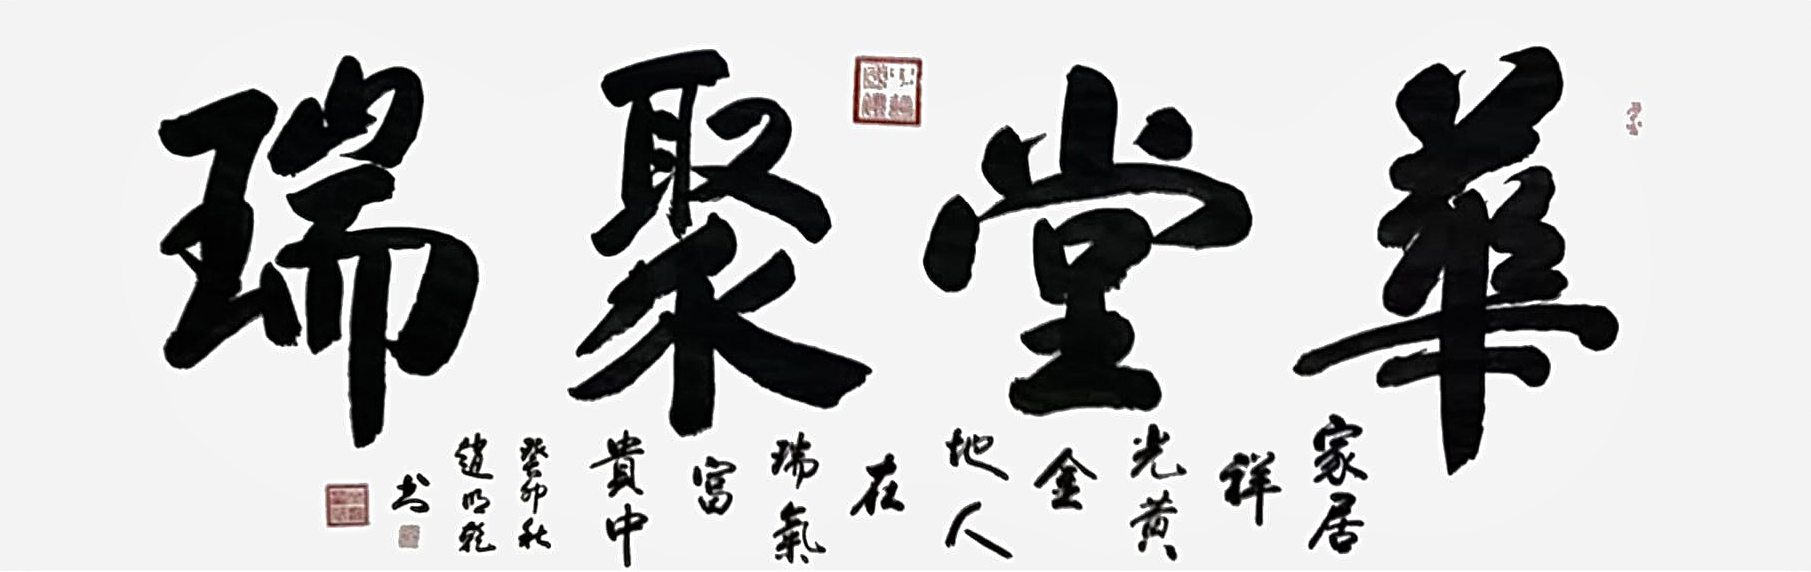 華堂聚瑞
家居
祥
光黃
金
地人
在
瑞氣
富
貴中
癸卯秋
趙明乾
书